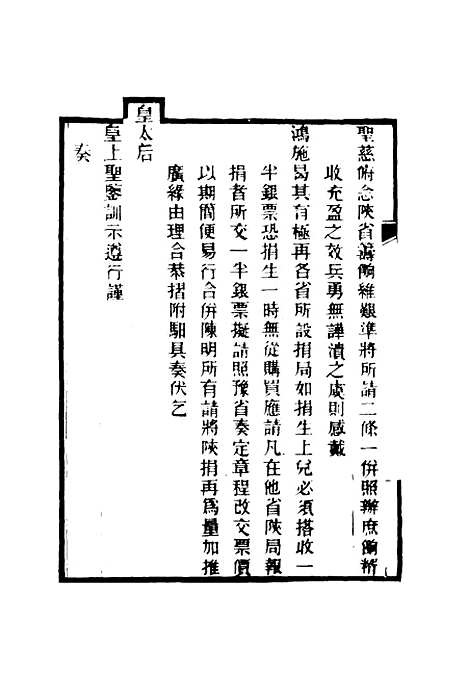 聖慈俯念陝省籌餉維艱準將所請二條一併照辦庶餉糈
收充盈之效兵勇無譁潰之虞則感戴
鴻施曷其有極再各省所設捐局如捐生上兌必須搭收一
半銀票恐捐生一時無從購買應請凡在他省陝局報
捐者所交一半銀票擬請照豫省奏定章程改交票價
以期簡便易行合併陳明所有請將陝捐再爲量加推
廣緣由理合恭摺附馹具奏伏乞
皇太后
皇上聖鑒訓示遵行謹
奏